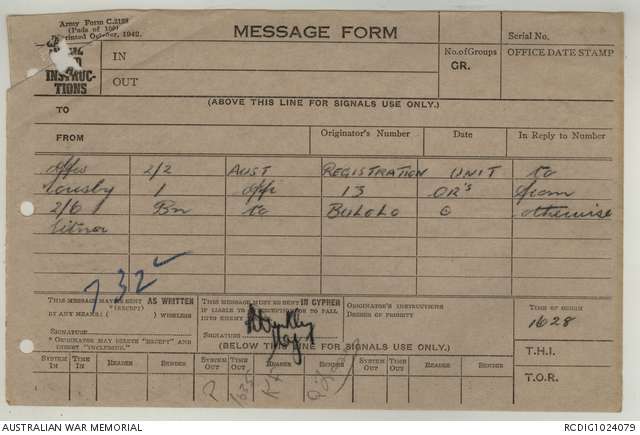 Army Form C.2128
(Pads of 100)
Printed October, 1942.
MESSAGE FORM
Serial No.
INSTRUC-
TIONS
IN
OUT
No. of Groups
GR.
OFFICE DATE STAMP
(ABOVE THIS LINE FOR SIGNALS USE ONLY.)
TO
FROM
Originator's Number
Date
In Reply to Number
2/2 AUST REGISTRATION UNIT to
1 offr 13 OR's from
2/6 Bn to BULOLO otherwise
732
THIS MESSAGE MAY BE SENT AS WRITTEN
(EXCEPT)
BY ANY MEANS ( ) WIRELESS
SIGNATURE
* ORIGINATOR MAY DELETE "EXCEPT" AND
INSERT "INCLUDING."
THIS MESSAGE MUST BE SENT IN CYPHER
IF LIABLE TO INTERCEPTION OR TO FALL
INTO ENEMY
SIGNATURE
Maj
ORIGINATOR'S INSTRUCTIONS
DEGREE OF PRIORITY
TIME OF ORIGIN
1628
(BELOW THIS LINE FOR SIGNALS USE ONLY.)
T.H.I.
SYSTEM IN
TIME IN
READER
SENDER
SYSTEM OUT
TIME OUT
READER
SENDER
SYSTEM OUT
TIME OUT
READER
SENDER
T.O.R.
AUSTRALIAN WAR MEMORIAL
RCDIG1024079